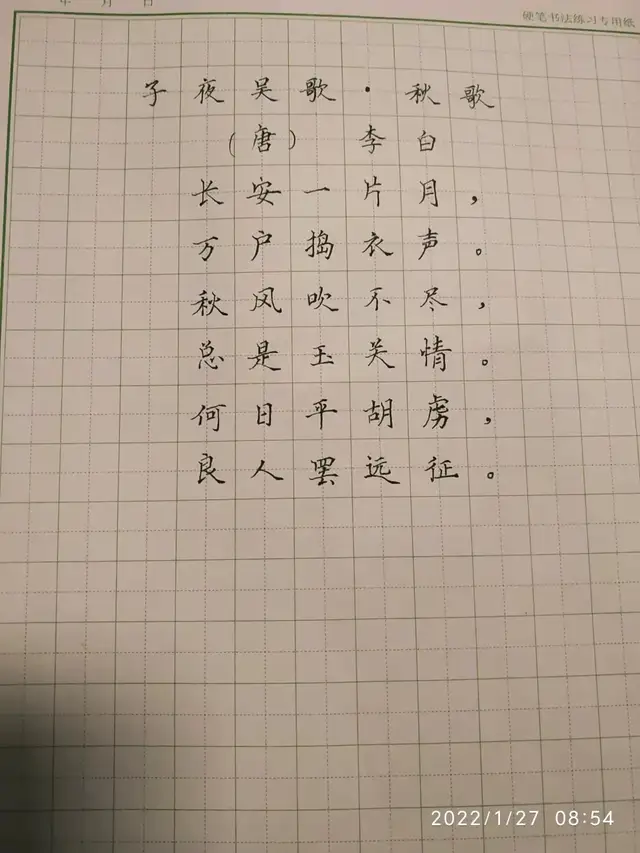 年 月 日
硬笔书法练习专用纸
子夜吴歌·秋歌
（唐） 李白
长安一片月，
万户捣衣声。
秋风吹不尽，
总是玉关情。
何日平胡虏，
良人罢远征。
2022/1/27 08:54